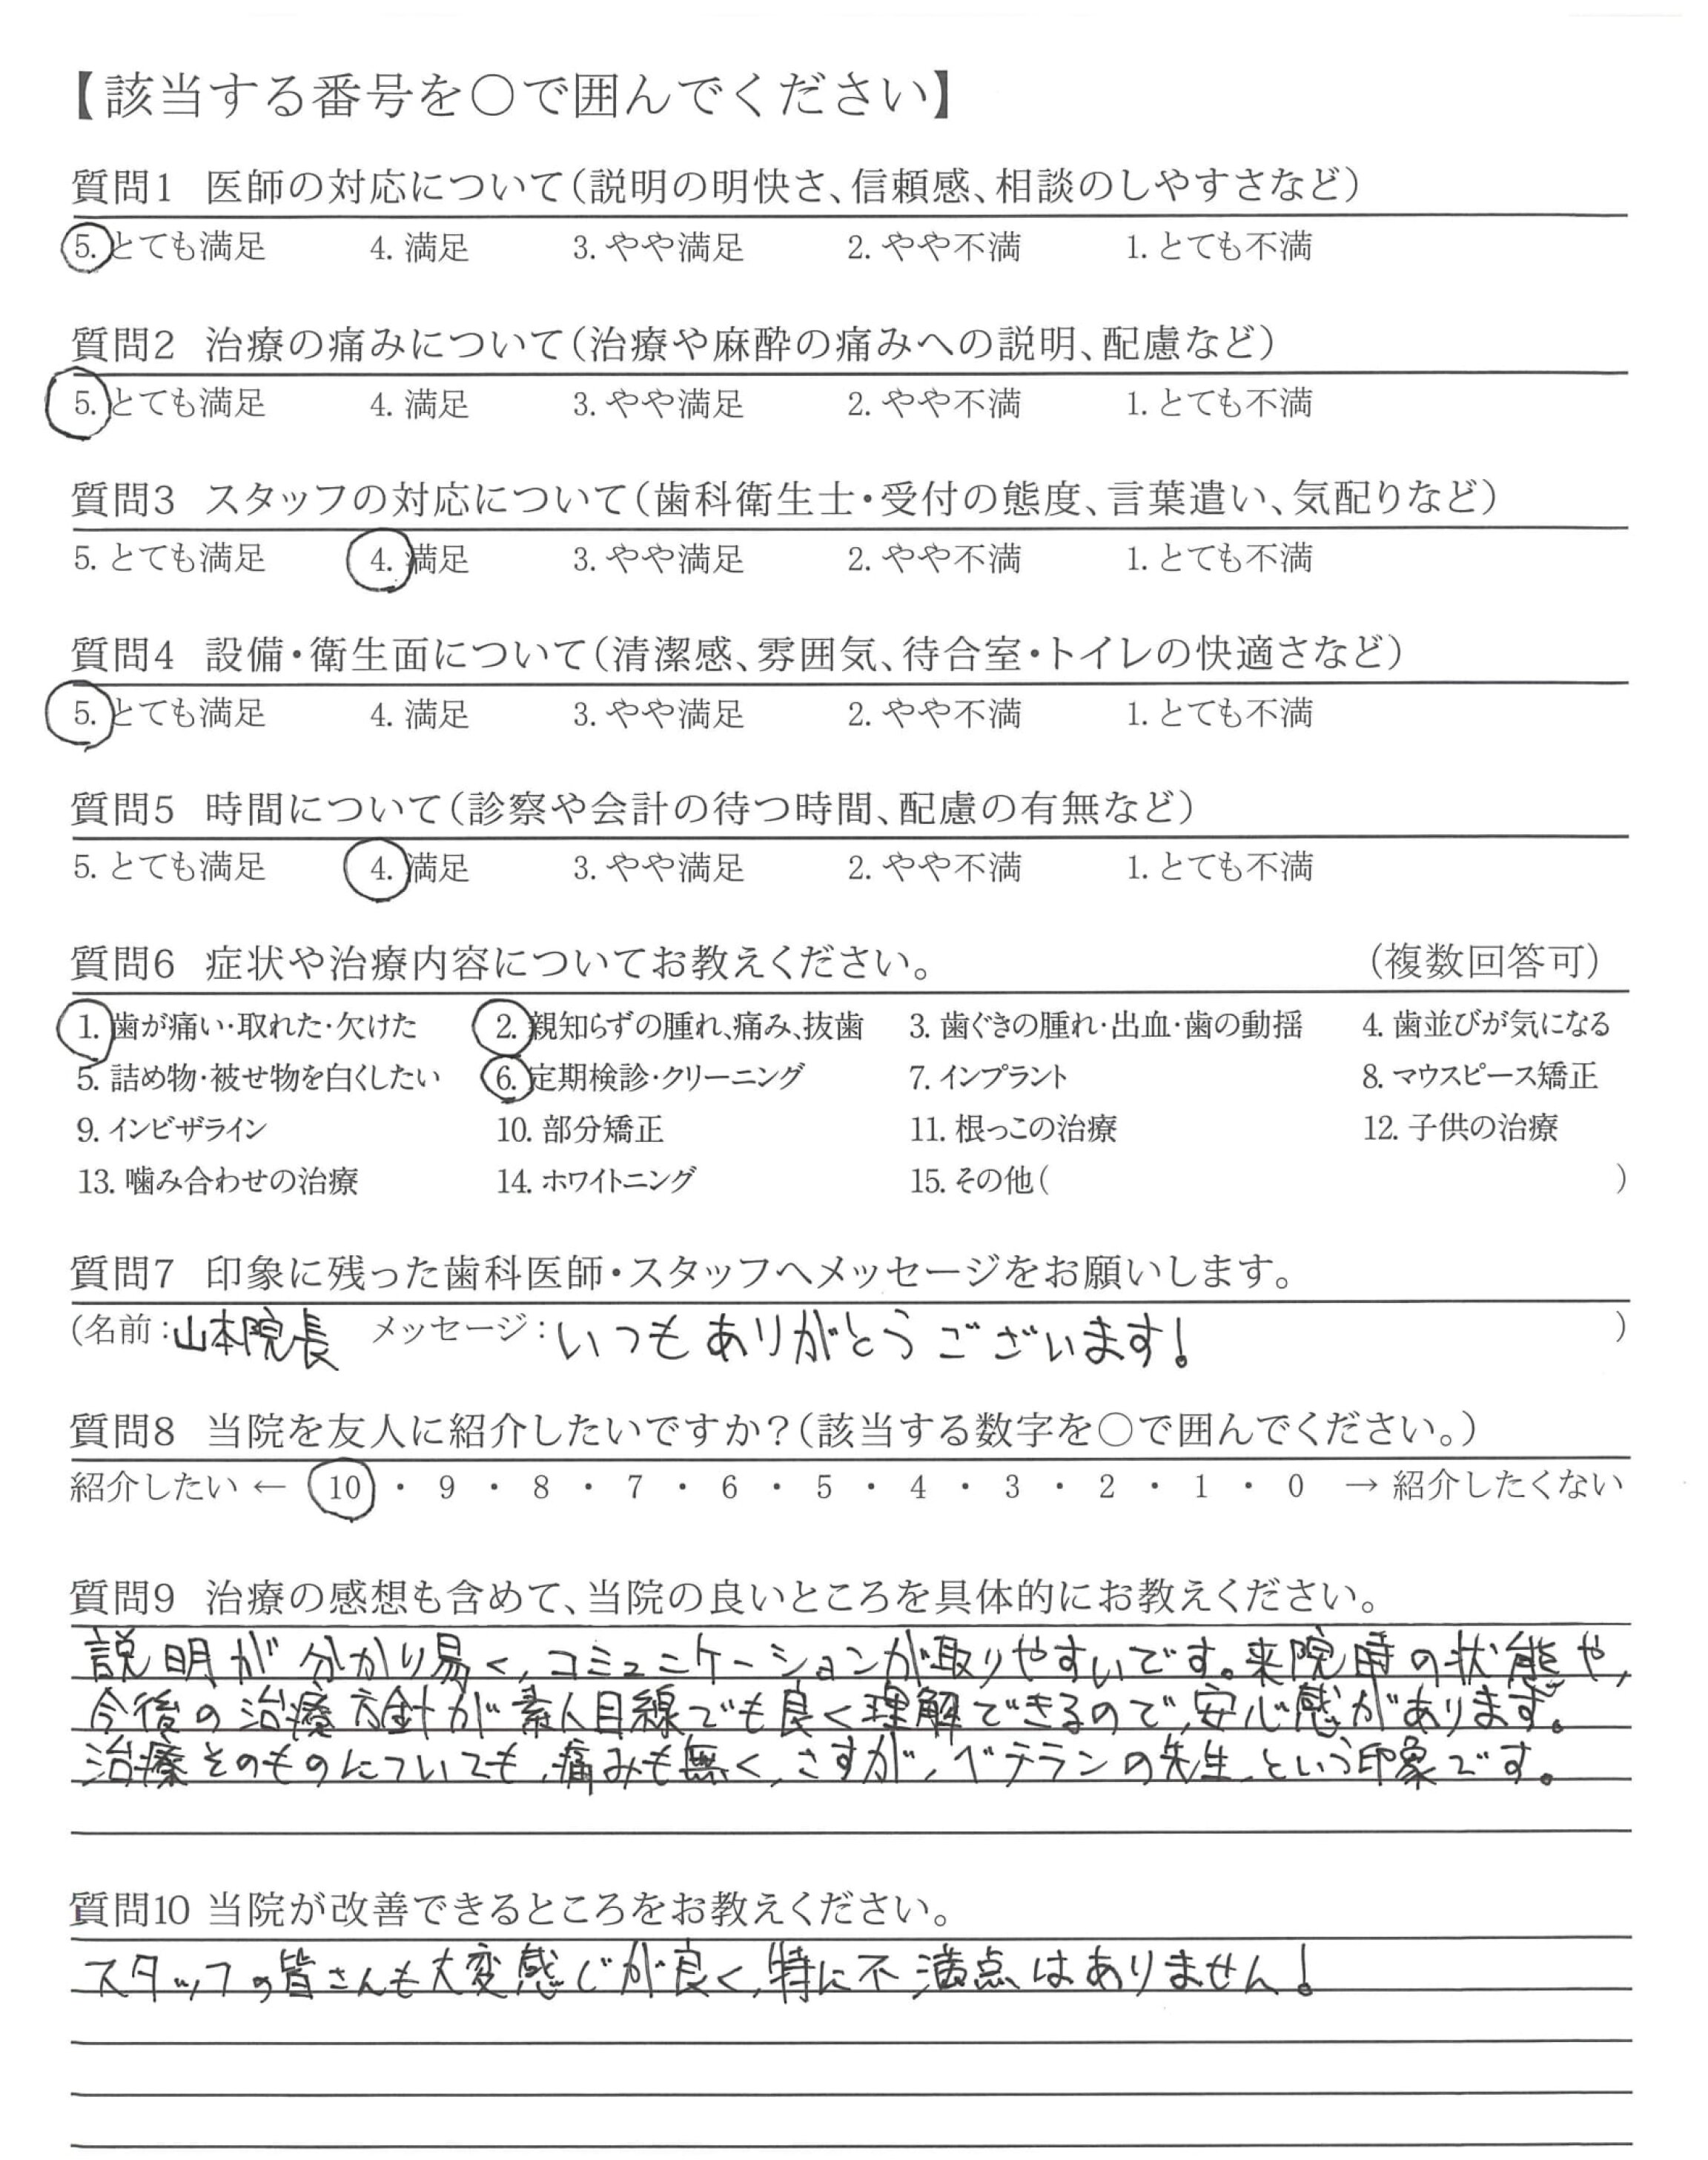 【該当する番号を○で囲んでください】
質問1 医師の対応について(説明の明快さ、信頼感、相談のしやすさなど)
5. とても満足 4. 満足 3. やや満足 2. やや不満 1. とても不満
質問2 治療の痛みについて(治療や麻酔の痛みへの説明、配慮など)
5. とても満足 4. 満足 3. やや満足 2. やや不満 1. とても不満
質問3 スタッフの対応について(歯科衛生士・受付の態度、言葉遣い、気配りなど)
5. とても満足 4. 満足 3. やや満足 2. やや不満 1. とても不満
質問4 設備・衛生面について(清潔感、雰囲気、待合室・トイレの快適さなど)
5. とても満足 4. 満足 3. やや満足 2. やや不満 1. とても不満
質問5 時間について(診察や会計の待つ時間、配慮の有無など)
5. とても満足 4. 満足 3. やや満足 2. やや不満 1. とても不満
質問6 症状や治療内容についてお教えください。 (複数回答可)
1. 歯が痛い・取れた・欠けた 2. 親知らずの腫れ、痛み、抜歯 3. 歯ぐきの腫れ・出血・歯の動揺 4. 歯並びが気になる
5. 詰め物・被せ物を白くしたい 6. 定期検診・クリーニング 7. インプラント 8. マウスピース矯正
9. インビザライン 10. 部分矯正 11. 根っこの治療 12. 子供の治療
13. 噛み合わせの治療 14. ホワイトニング 15. その他( )
質問7 印象に残った歯科医師・スタッフへメッセージをお願いします。
(名前:山本院長 メッセージ:いつもありがとうございます! )
質問8 当院を友人に紹介したいですか?(該当する数字を○で囲んでください。)
紹介したい ← 10 ・ 9 ・ 8 ・ 7 ・ 6 ・ 5 ・ 4 ・ 3 ・ 2 ・ 1 ・ 0 → 紹介したくない
質問9 治療の感想も含めて、当院の良いところを具体的にお教えください。
説明が分かり易く、コミュニケーションが取りやすいです。来院時の状態や、
今後の治療方針が素人目線でも良く理解できるので、安心感があります。
治療そのものについても、痛みも無く、さすが、ベテランの先生、という印象です。
質問10 当院が改善できるところをお教えください。
スタッフの皆さんも大変感じが良く、特に不満点はありません!